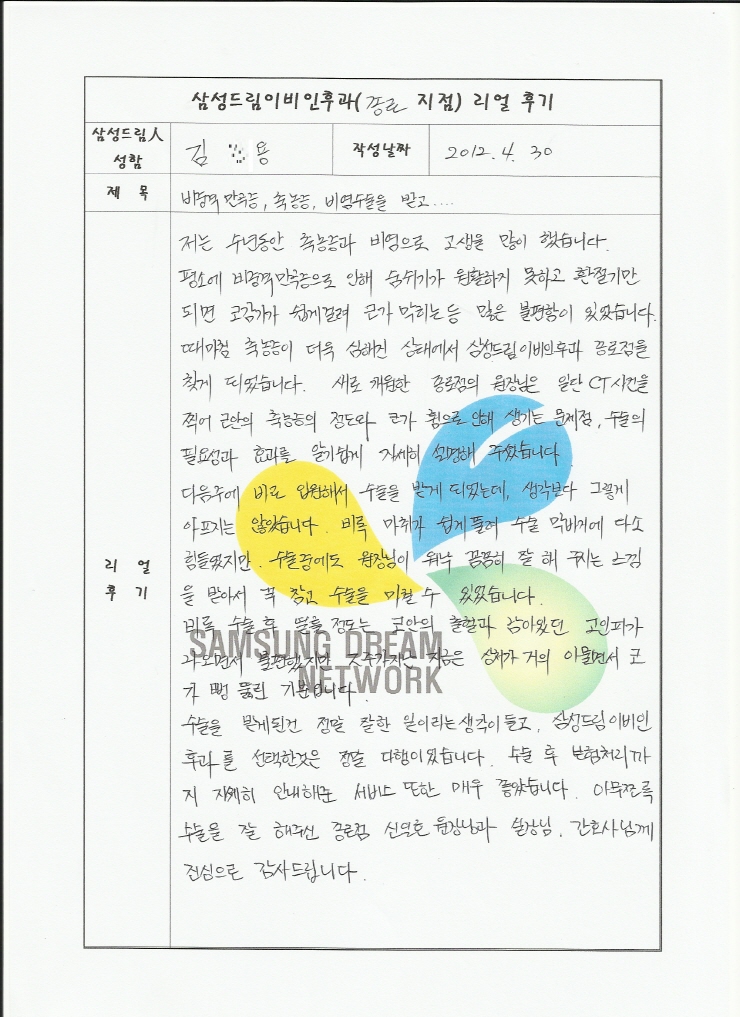 삼성드림이비인후과(종로 지점) 리얼 후기
삼성드림人 성함 김 용 작성날짜 2012. 4. 30
제 목 비중격만곡증, 축농증, 비염수술을 받고....
리 얼 후 기
저는 수년동안 축농증과 비염으로 고생을 많이 했습니다.
평소에 비중격만곡증으로 인해 숨쉬기가 원활하지 못하고 환절기만
되면 코감기가 쉽게걸려 코가 막히는등 많은 불편함이 있었습니다.
때마침 축농증이 더욱 심해진 상태에서 삼성드림이비인후과 종로점을
찾게 되었습니다. 새로 개원한 종로점의 원장님은 일단 CT사진을
찍어 코안의 축농증의 정도와 코가 휨으로 인해 생기는 문제점, 수술의
필요성과 효과를 알기쉽게 자세히 설명해 주셨습니다
다음주에 바로 입원해서 수술을 받게 되었는데, 생각보다 그렇게
아프지는 않았습니다. 비록 마취가 쉽게풀려 수술 막바지에 다소
힘들었지만. 수술중에도 원장님이 워낙 꼼꼼히 잘 해 주시는 느낌
을 받아서 꾹 참고 수술을 마칠 수 있었습니다.
비록 수술 후 열흘 정도는 코안의 출혈과 남아있던 코인피가
나오면서 불편했지만 지금은 상처가 거의 아물면서 코
가 뻥 뚫린 기분입니다.
수술을 받게된건 정말 잘한 일이라는생각이들고, 삼성드림이비인
후과를 선택한것은 정말 다행이었습니다. 수술 후 보험처리까
지 자세히 안내해준 서비스 또한 매우 좋았습니다. 아무쪼록
수술을 잘 해주신 종로점 원장님과 실장님, 간호사님께
진심으로 감사드립니다.
SAMSUNG DREAM
NETWORK